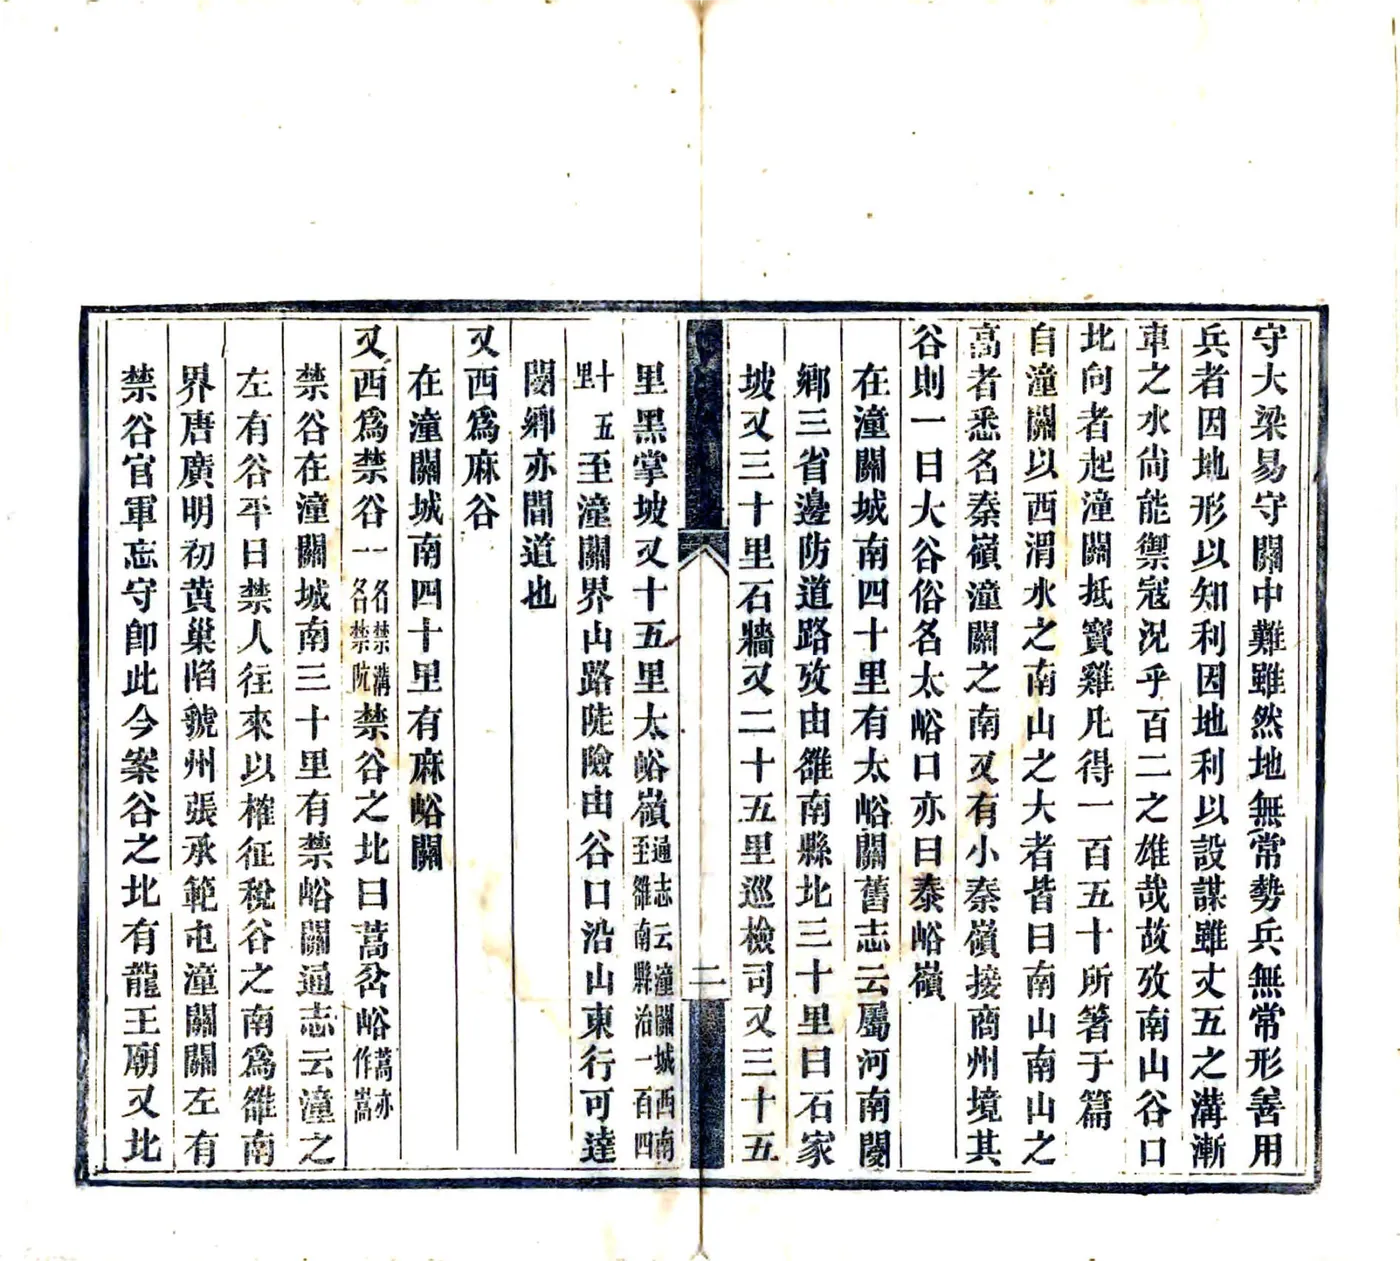 守大梁易守關中難雖然地無常勢兵無常形善用
兵者因地形以知利因地利以設謀雖丈五之溝漸
車之水尙能禦寇況乎百二之雄哉故攷南山谷口
北向者起潼關抵寶雞凡得一百五十所箸于篇
自潼關以西渭水之南山之大者皆曰南山南山之
高者悉名秦嶺潼關之南又有小秦嶺接商州境其
谷則一曰大谷俗名太峪口亦曰泰峪嶺
在潼關城南四十里有太峪關舊志云屬河南閿
鄉三省邊防道路攷由雒南縣北三十里曰石家
坡又三十里石牆又二十五里巡檢司又三十五
二
里黑掌坡又十五里太峪嶺通志云潼關城西南至雒南縣治一百四
十五里至潼關界山路陡險由谷口沿山東行可達
閿鄉亦間道也
又西爲麻谷
在潼關城南四十里有麻峪關
又西爲禁谷一名禁溝一名禁阬禁谷之北曰蒿岔峪蒿亦作嵩
禁谷在潼關城南三十里有禁峪關通志云潼關之
左有谷平日禁人往來以榷征稅谷之南爲雒南
界唐廣明初黄巢陷虢州張承範屯潼關關左有
禁谷官軍忘守卽此今案谷之北有龍王廟又北